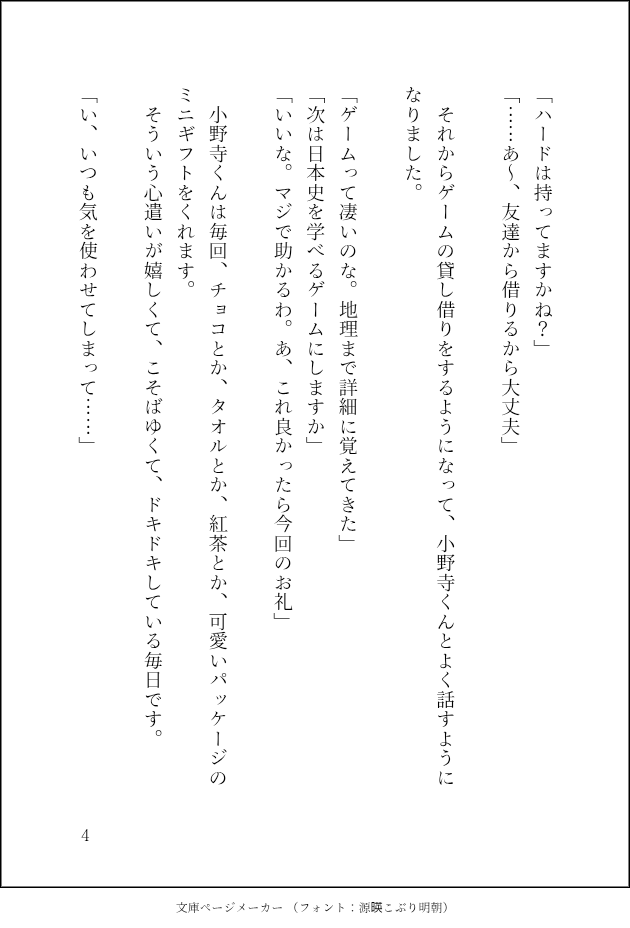 「ハードは持ってますかね？」
「……あ～、友達から借りるから大丈夫」
それからゲームの貸し借りをするようになって、小野寺くんとよく話すように
なりました。
「ゲームって凄いのな。地理まで詳細に覚えてきた」
「次は日本史を学べるゲームにしますか」
「いいな。マジで助かるわ。あ、これ良かったら今回のお礼」
小野寺くんは毎回、チョコとか、タオルとか、紅茶とか、可愛いパッケージの
ミニギフトをくれます。
そういう心遣いが嬉しくて、こそばゆくて、ドキドキしている毎日です。
「い、いつも気を使わせてしまって……」
4
文庫ページメーカー（フォント：源暎こぶり明朝）